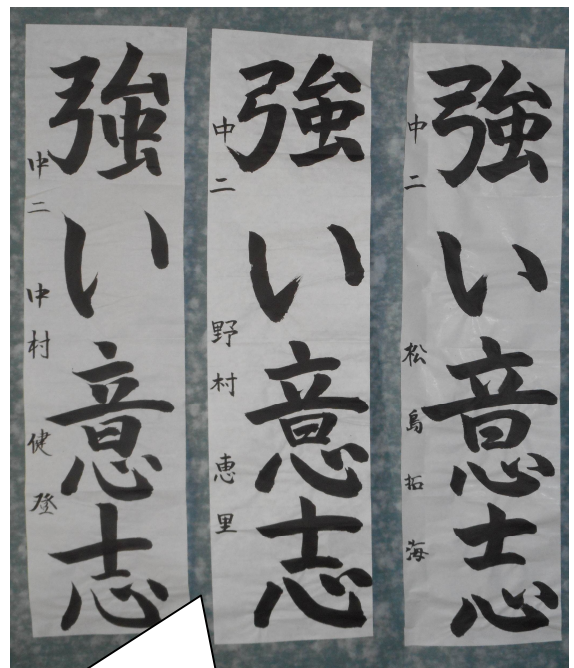 強い意志
中二 松島拓海
強い意志
中二 野村恵里
強い意志
中二 中村健登